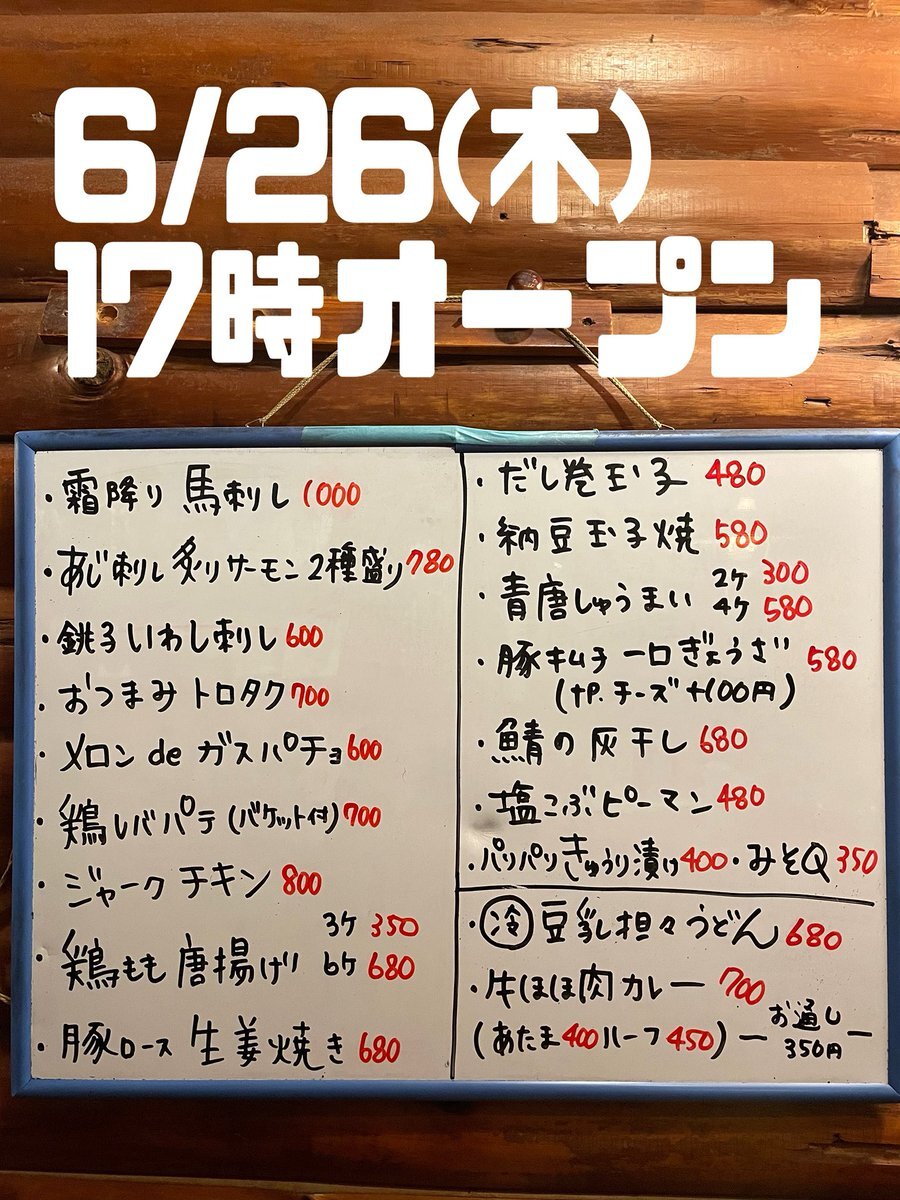 6/26(木)
17時オープン
・霜降り 馬刺し 1000
・あじ刺し 炙りサーモン 2種盛り 780
・銚子いわし刺し 600
・おつまみ トロタク 700
・メロン de ガスパチョ 600
・鶏レバパテ (バケット付) 700
・ジャークチキン 800
・鶏もも 唐揚げ 3ケ 350
6ケ 680
・豚ロース 生姜焼き 680
・だし巻玉子 480
・納豆玉子焼 580
・青唐しゅうまい 2ケ 300
4ケ 580
・豚キムチ 一口ぎょうざ 580
(tP.チーズ+100円)
・鯖の灰干し 680
・塩こぶピーマン 480
・パリパリきゅうり漬け 400 ・みそQ 350
・冷 豆乳担々うどん 680
・牛ほほ肉カレー 700
(あたま400ハーフ450)
ー お通し ー
350円